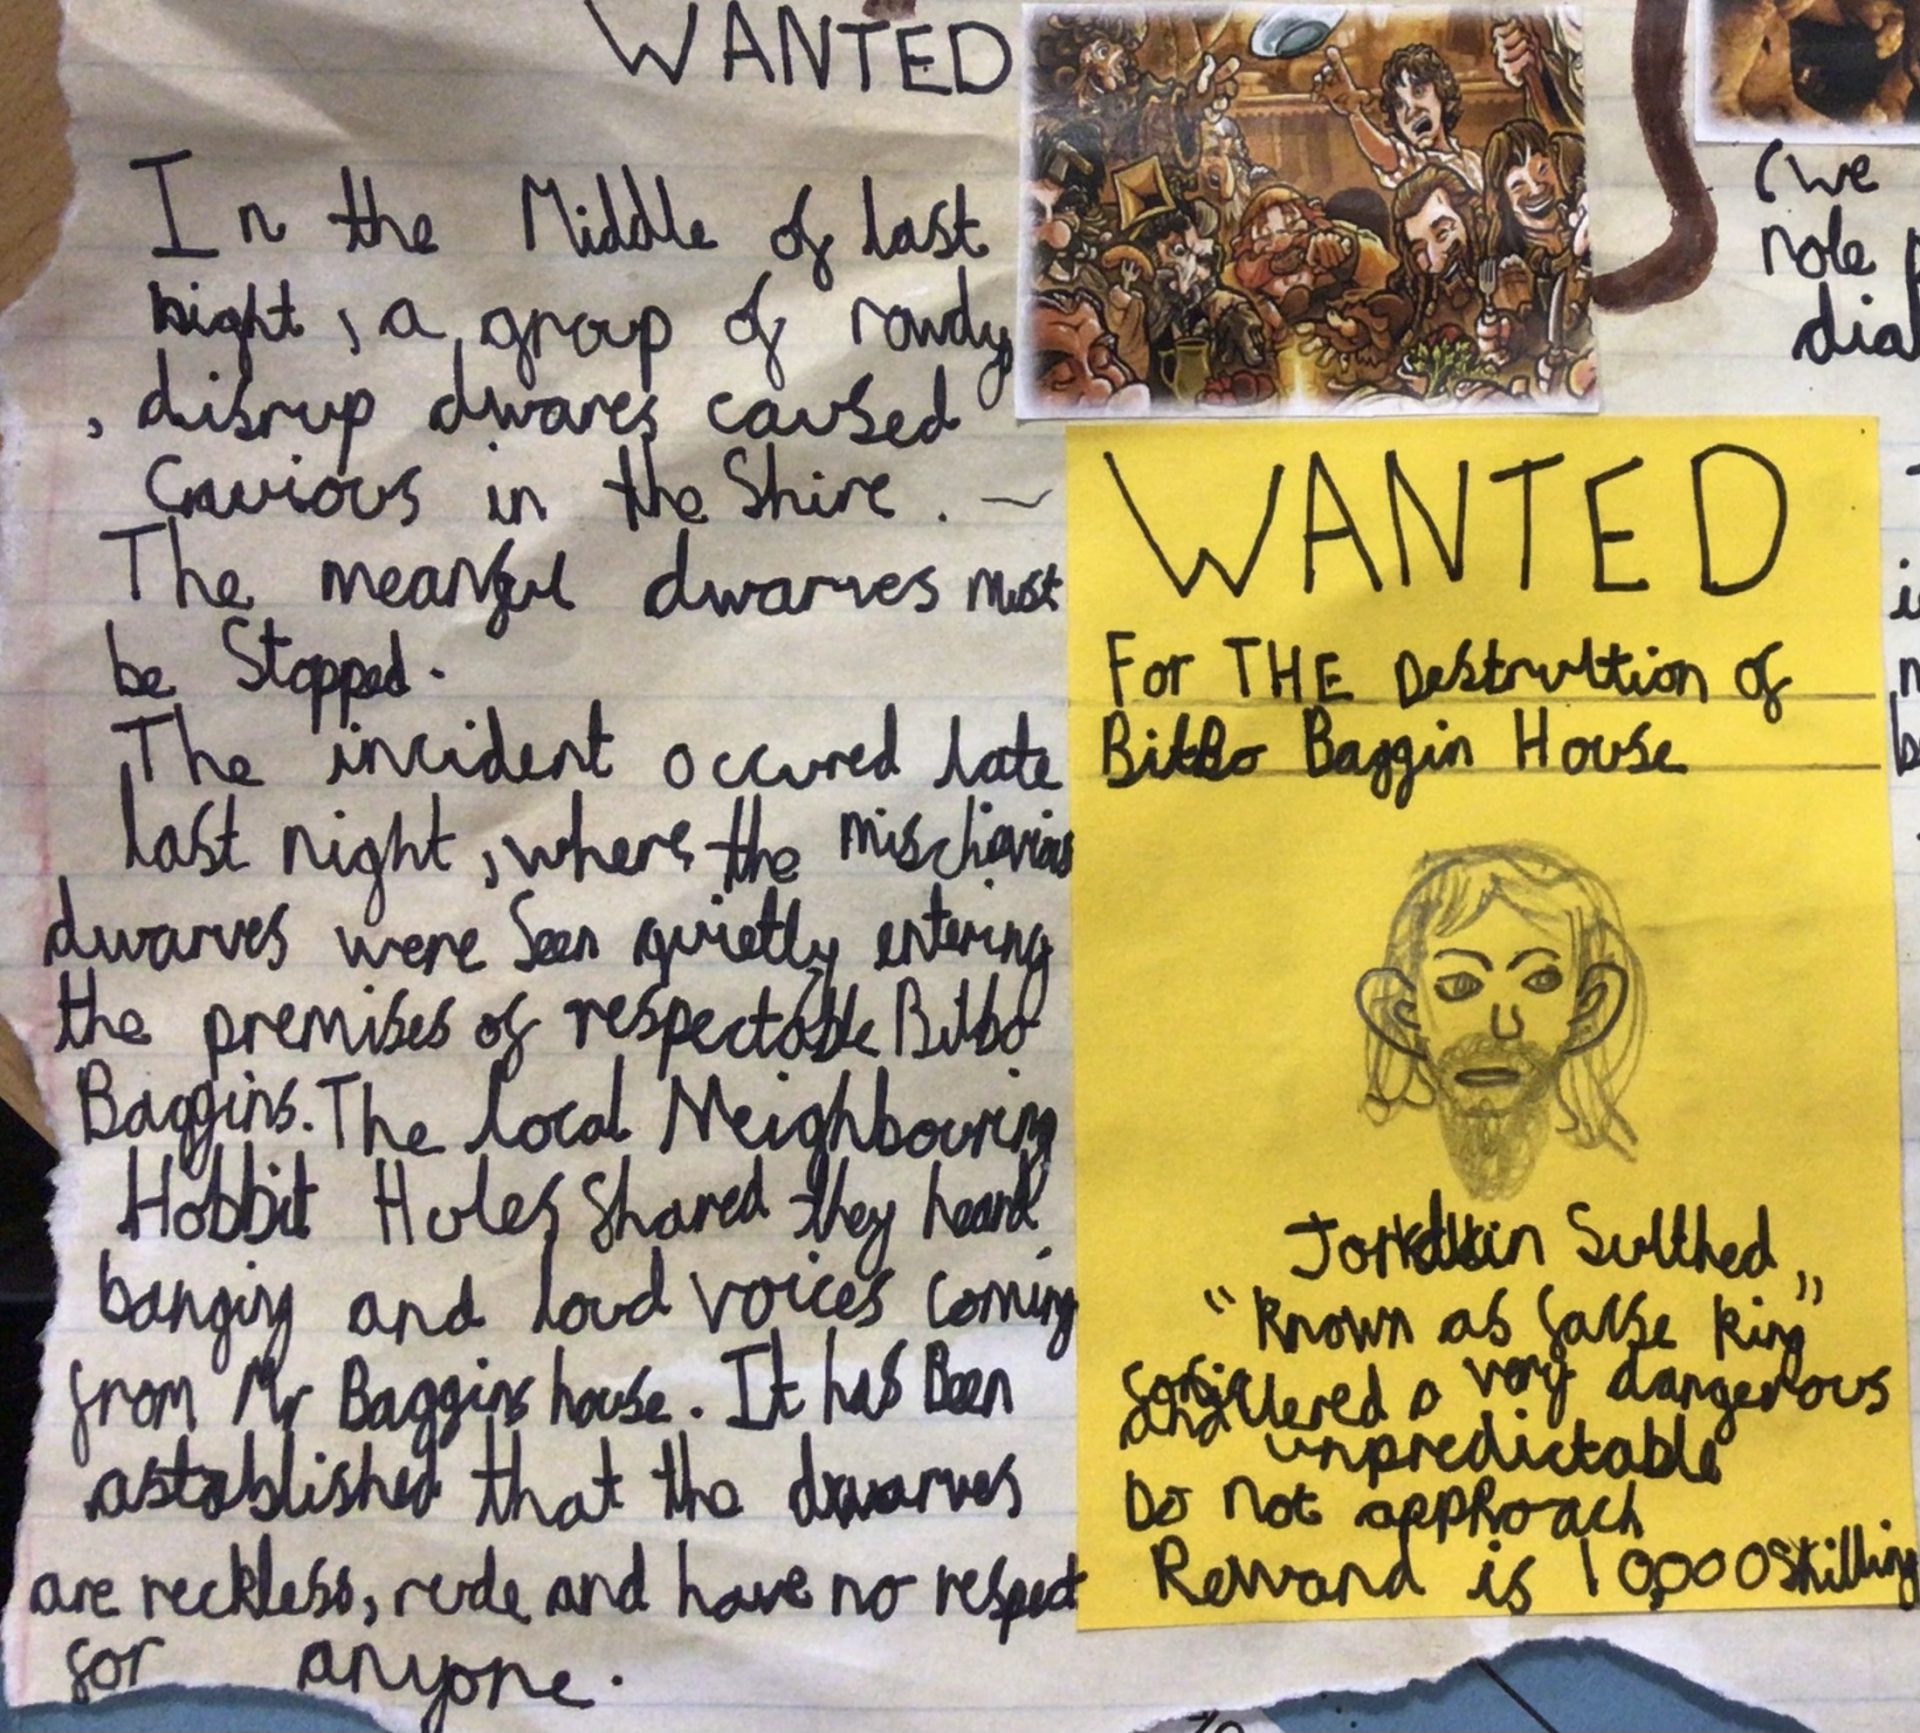 WANTED
In the Middle of last
night, a group of rowdy
, disrup dwarves caused
in the Shire.
The meanful dwarves must
be Stopped.
The incident occured late
last night, where the mischievious
dwarves were Seen quietly entering
the premises of respectable Bilbo
Baggins. The local Neighbouring
Hobbit Holes Shared they heard
banging and loud voices coming
from Mr Baggins house. It has Been
astablished that the dwarves
are reckless, rude and have no respect
for anyone.
WANTED
For THE Destrultion of
BilBo Baggin House
Sulthed
"Known as false King"
a very dangerous
and unpredictable
Do not approach
Reward is 10,000 Shilling
(we
note
dial